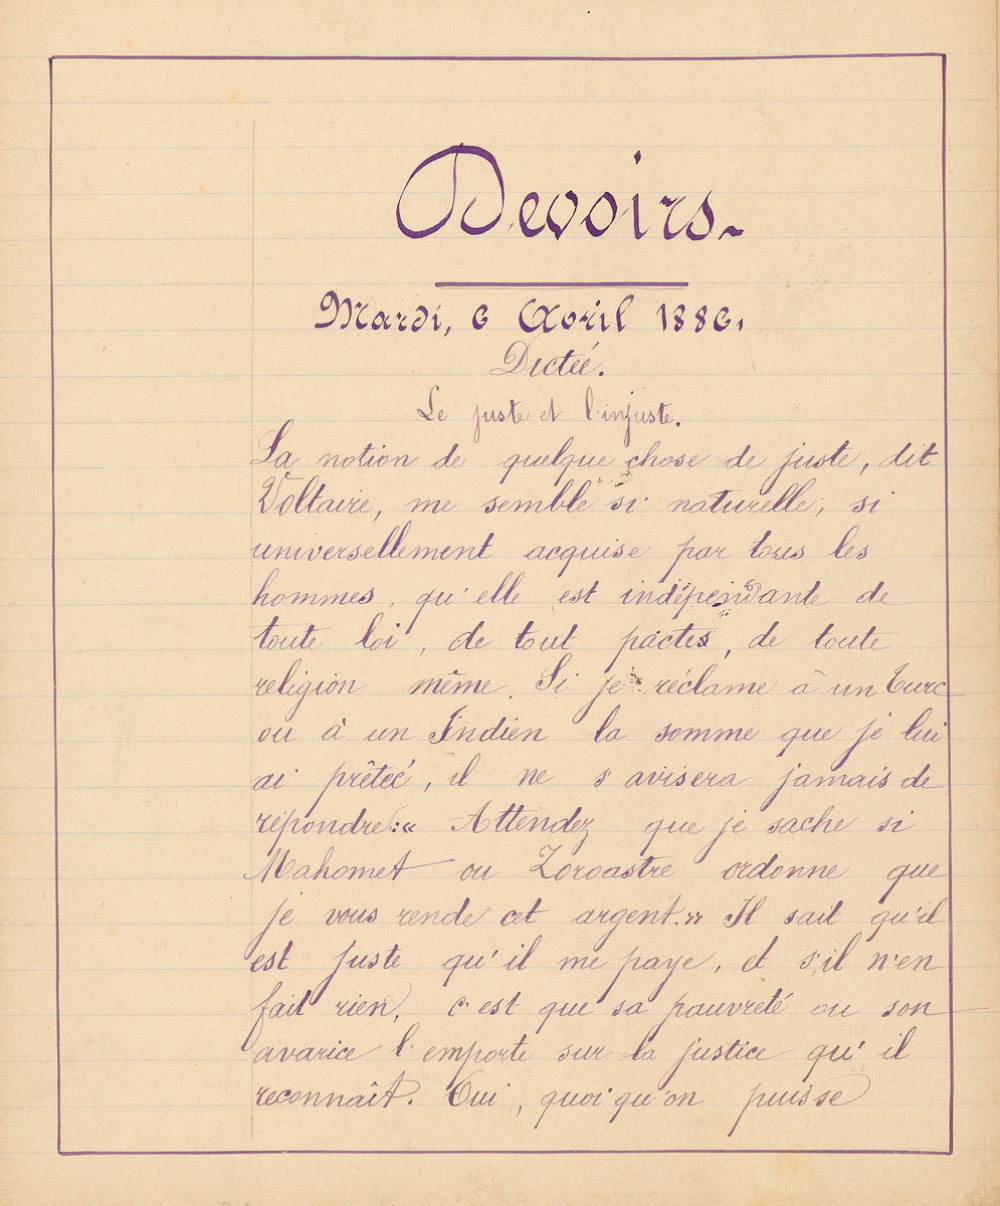 Devoirs.
Mardi, 6 Avril 1886.
Dictée.
Le juste et l'injuste.
La notion de quelque chose de juste, dit
Voltaire, me semble si naturelle, si
universellement acquise par tous les
hommes, qu'elle est indépendante de
toute loi, de tout pactes, de toute
religion même. Si je réclame à un Turc
ou à un Indien la somme que je lui
ai prêteé, il ne s'avisera jamais de
répondre: « Attendez que je sache si
Mahomet ou Zoroastre ordonne que
je vous rende cet argent. » Il sait qu'il
est juste qu'il me paye, et s'il n'en
fait rien, c'est que sa pauvreté ou son
avarice l'emporte sur la justice qu'il
reconnaît. Oui, quoiqu'on puisse